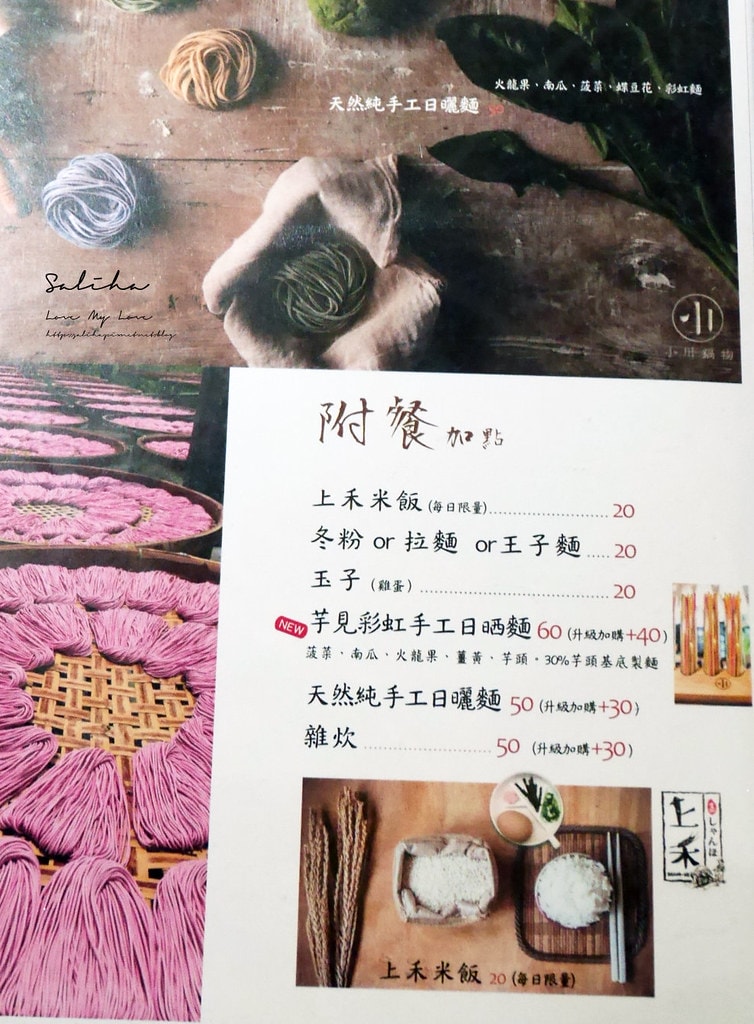 火龍果、南瓜、菠菜、蝶豆花、彩虹麵
天然純手工日曬麵 50
Saliha
Love My Love
小
小川鍋物
附餐加點
上禾米飯(每日限量)........................ 20
冬粉 or 拉麵 or王子麵..... 20
玉子 (雞蛋) ........................................ 20
NEW 芋見彩虹手工日晒麵 60 (升級加購+40)
菠菜、南瓜、火龍果、薑黃、芋頭。30%芋頭基底製麵
天然純手工日曬麵 50 (升級加購+30)
雜炊........................... 50 (升級加購+30)
上禾
しゃんほ
上禾米飯 20 (每日限量)